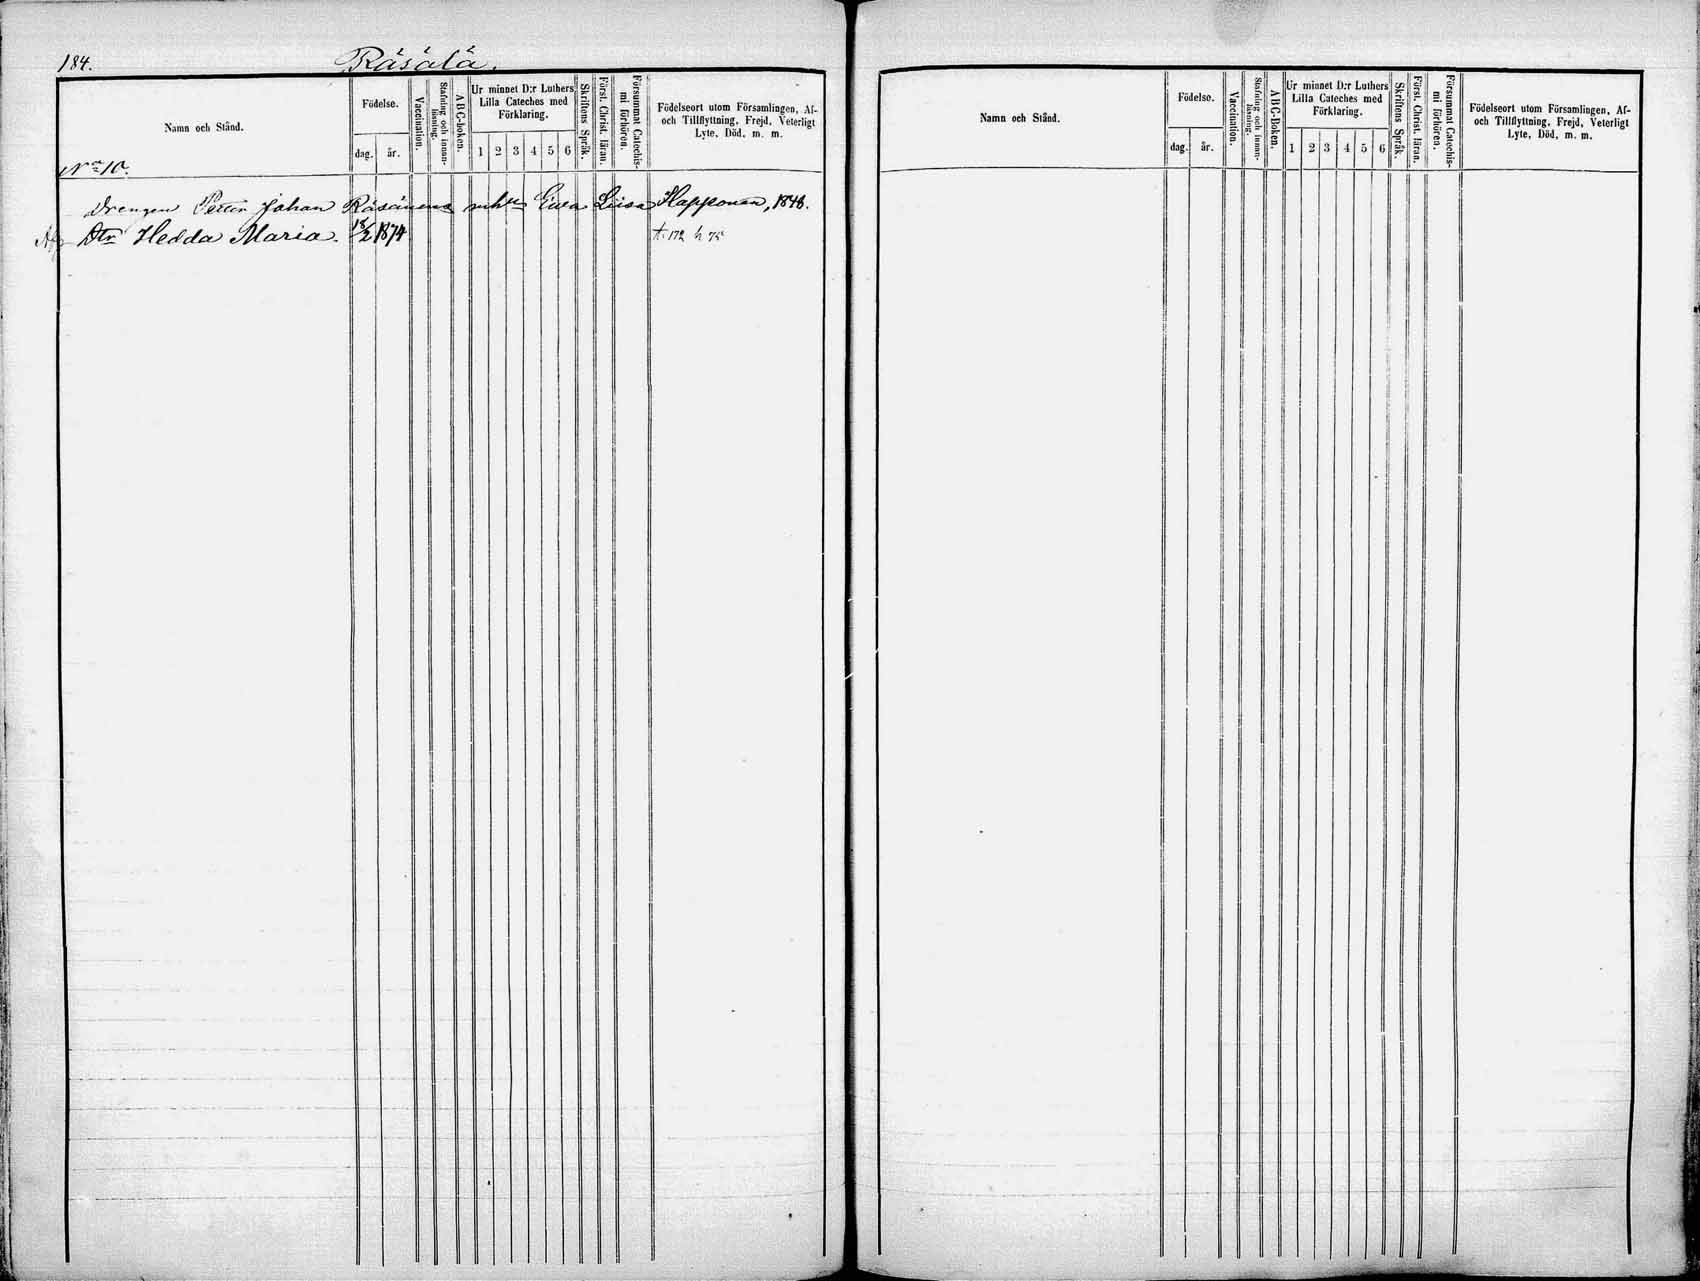 184.
Räsälä.
Namn och Stånd.
Födelse.
dag. år.
Vaccination.
Stafning och innan-
läsning.
ABC-boken.
Ur minnet D:r Luthers
Lilla Cateches med
Förklaring.
1 2 3 4 5 6
Skriftens Språk.
Först. Christ. läran.
Försummat Catechis-
mi förhören.
Födelseort utom Församlingen, Af-
och Tillflyttning, Frejd, Veterligt
Lyte, Död, m. m.
No 10.
Drengen Petter Johan Räsänens enka Ewa Liisa Happonen, 1848.
Dtr Hedda Maria. 18/2 1874 t. 172 h 75
Namn och Stånd.
Födelse.
dag. år.
Vaccination.
Stafning och innan-
läsning.
ABC-Boken.
Ur minnet D:r Luthers
Lilla Cateches med
Förklaring.
1 2 3 4 5 6
Skriftens Språk.
Först. Christ. läran.
Försummat Catechis-
mi förhören.
Födelseort utom Församlingen, Af-
och Tillflyttning, Frejd, Veterligt
Lyte, Död, m. m.